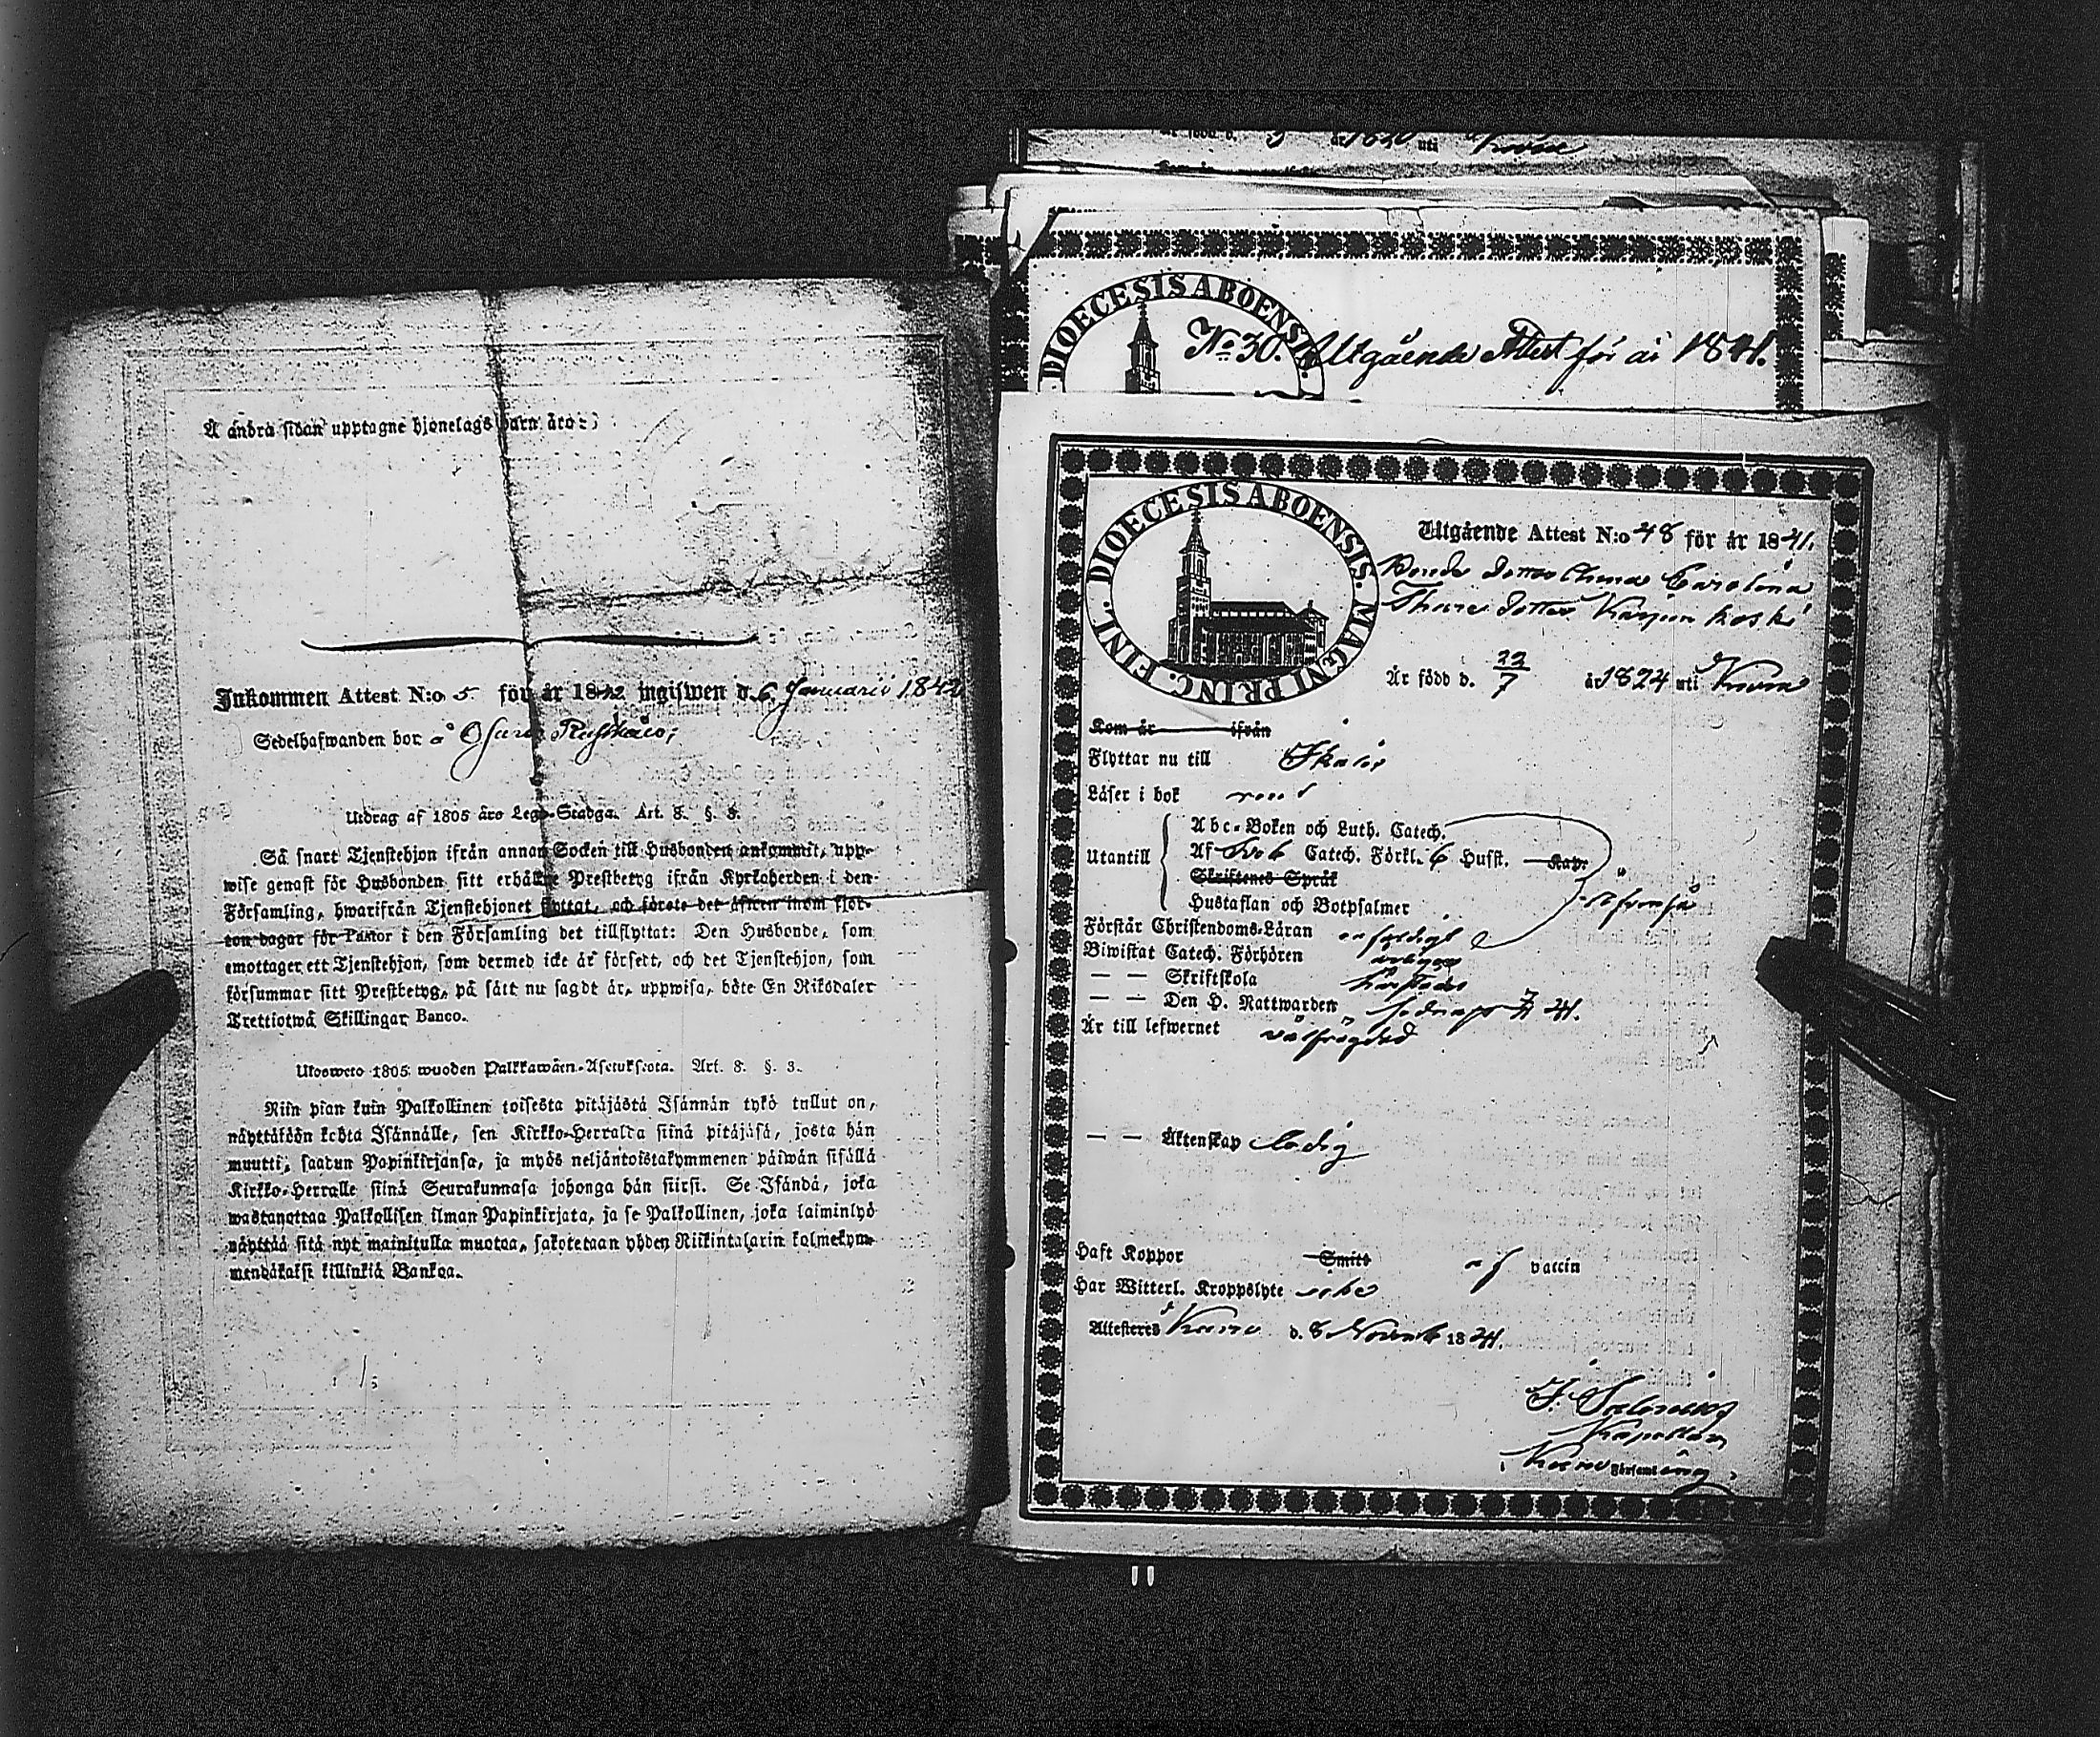 Å andra sidan upptagne hjonelags barn äro:
Inkommen Attest N:o 5 för år 1842 ingifwen d. 6 Januarii 1842
Sedelhafwanden bor å
Utdrag af 1805 års Lego-Stadga. Art. 8. §. 3.
Så snart Tjenstehjon ifrån annan Socken till Husbonden ankommit, upp-
wise genast för Husbonden sitt erhållne Prestbetyg ifrån Kyrkoherden i den
Församling, hwarifrån Tjenstehjonet flyttat, och förete det äfwen inom fjor-
ton dagar för Pastor i den Församling det tillflyttat: Den Husbonde, som
emottager ett Tjenstehjon, som dermed icke är försedt, och det Tjenstehjon, som
försummar sitt Prestbetyg, på sätt nu sagdt är, uppwisa, böte En Riksdaler
Trettiotwå Skillingar Banco.
Ulosweto 1805 wuoden Palkkawäen-Asetuksesta. Art. 8. §. 3.
Niin pian kuin Palkollinen toisesta pitäjästä Isännän tykö tullut on,
näyttäköön kohta Isännälle, sen Kirkko-Herralta siinä pitäjäsä, josta hän
muutti, saatun Papinkirjansa, ja myös neljäntoistakymmenen päiwän sisällä
Kirkko-Herralle siinä Seurakunnasa johonga hän siirsi. Se Isändä, joka
wastanottaa Palkollisen ilman Papinkirjata, ja se Palkollinen, joka laiminlyö
näyttää sitä nyt mainitulla muotoa, sakotetaan yhden Riikintalarin kolmekym-
mendäkaksi killinkiä Bankoa.
är född d. år 1820 uti
DIOECESIS ABOENSIS.
No 30. Utgående Attest för år 1841.
DIOECESIS ABOENSIS. MAGNI PRINC. FINL.
Utgående Attest N:o 48 för år 1841.
Bonde dottren Carolina
Thures dotter Karjun koski
Är född d. 22/7 år 1824 uti Kumo
Kom år ifrån
Flyttar nu till
Läser i bok rent
Utantill
Abc-Boken och Luth. Catech.
Af Catech. Förkl. 6 Husst. Kap.
Skriftenes Språk
Hustaflan och Botpsalmer
Förstår Christendoms-Läran enfaldigt
Biwistat Catech. Förhören
— — Skriftskola
— — Den H. Nattwarden 41.
Är till lefwernet välfrägdad
— — Äktenskap ledig
Haft Koppor Smitt af vaccin
Har Witterl. Kroppslyte icke
Attesteres Kumo d. 8 Novemb 1841.
Kapellan
Församling